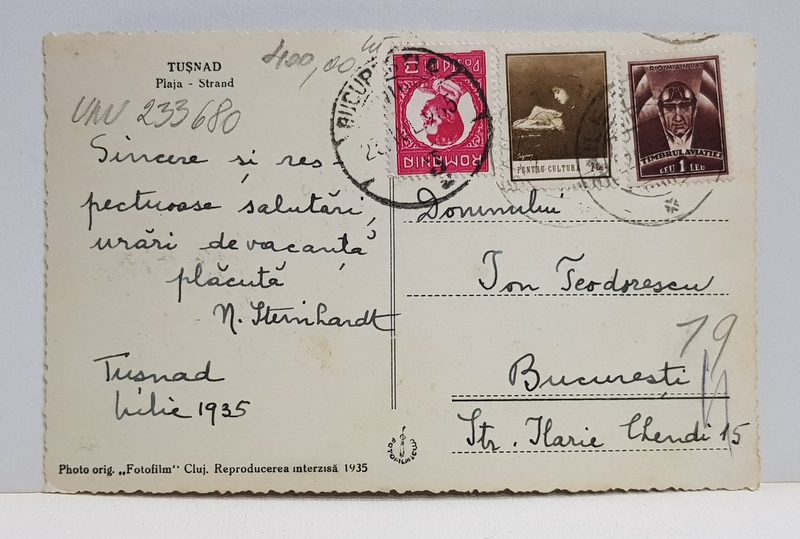 TUȘNAD
Plaja - Strand
400,00
233680
Sincere și res-
pectuoase salutări,
urări de vacanță
plăcută
N. Steinhardt
Tușnad
Iulie 1935
ROMANIA
PENTRU CULTURA
ROMANIA
TIMBRUL AVIAȚIEI
LEU 1 LEU
BUCUREȘTI
Domnului
Ion Teodorescu
București
Str. Ilarie Chendi 15
19
Photo orig. „Fotofilm" Cluj. Reproducerea interzisă 1935
FOTOFILM CLUJ